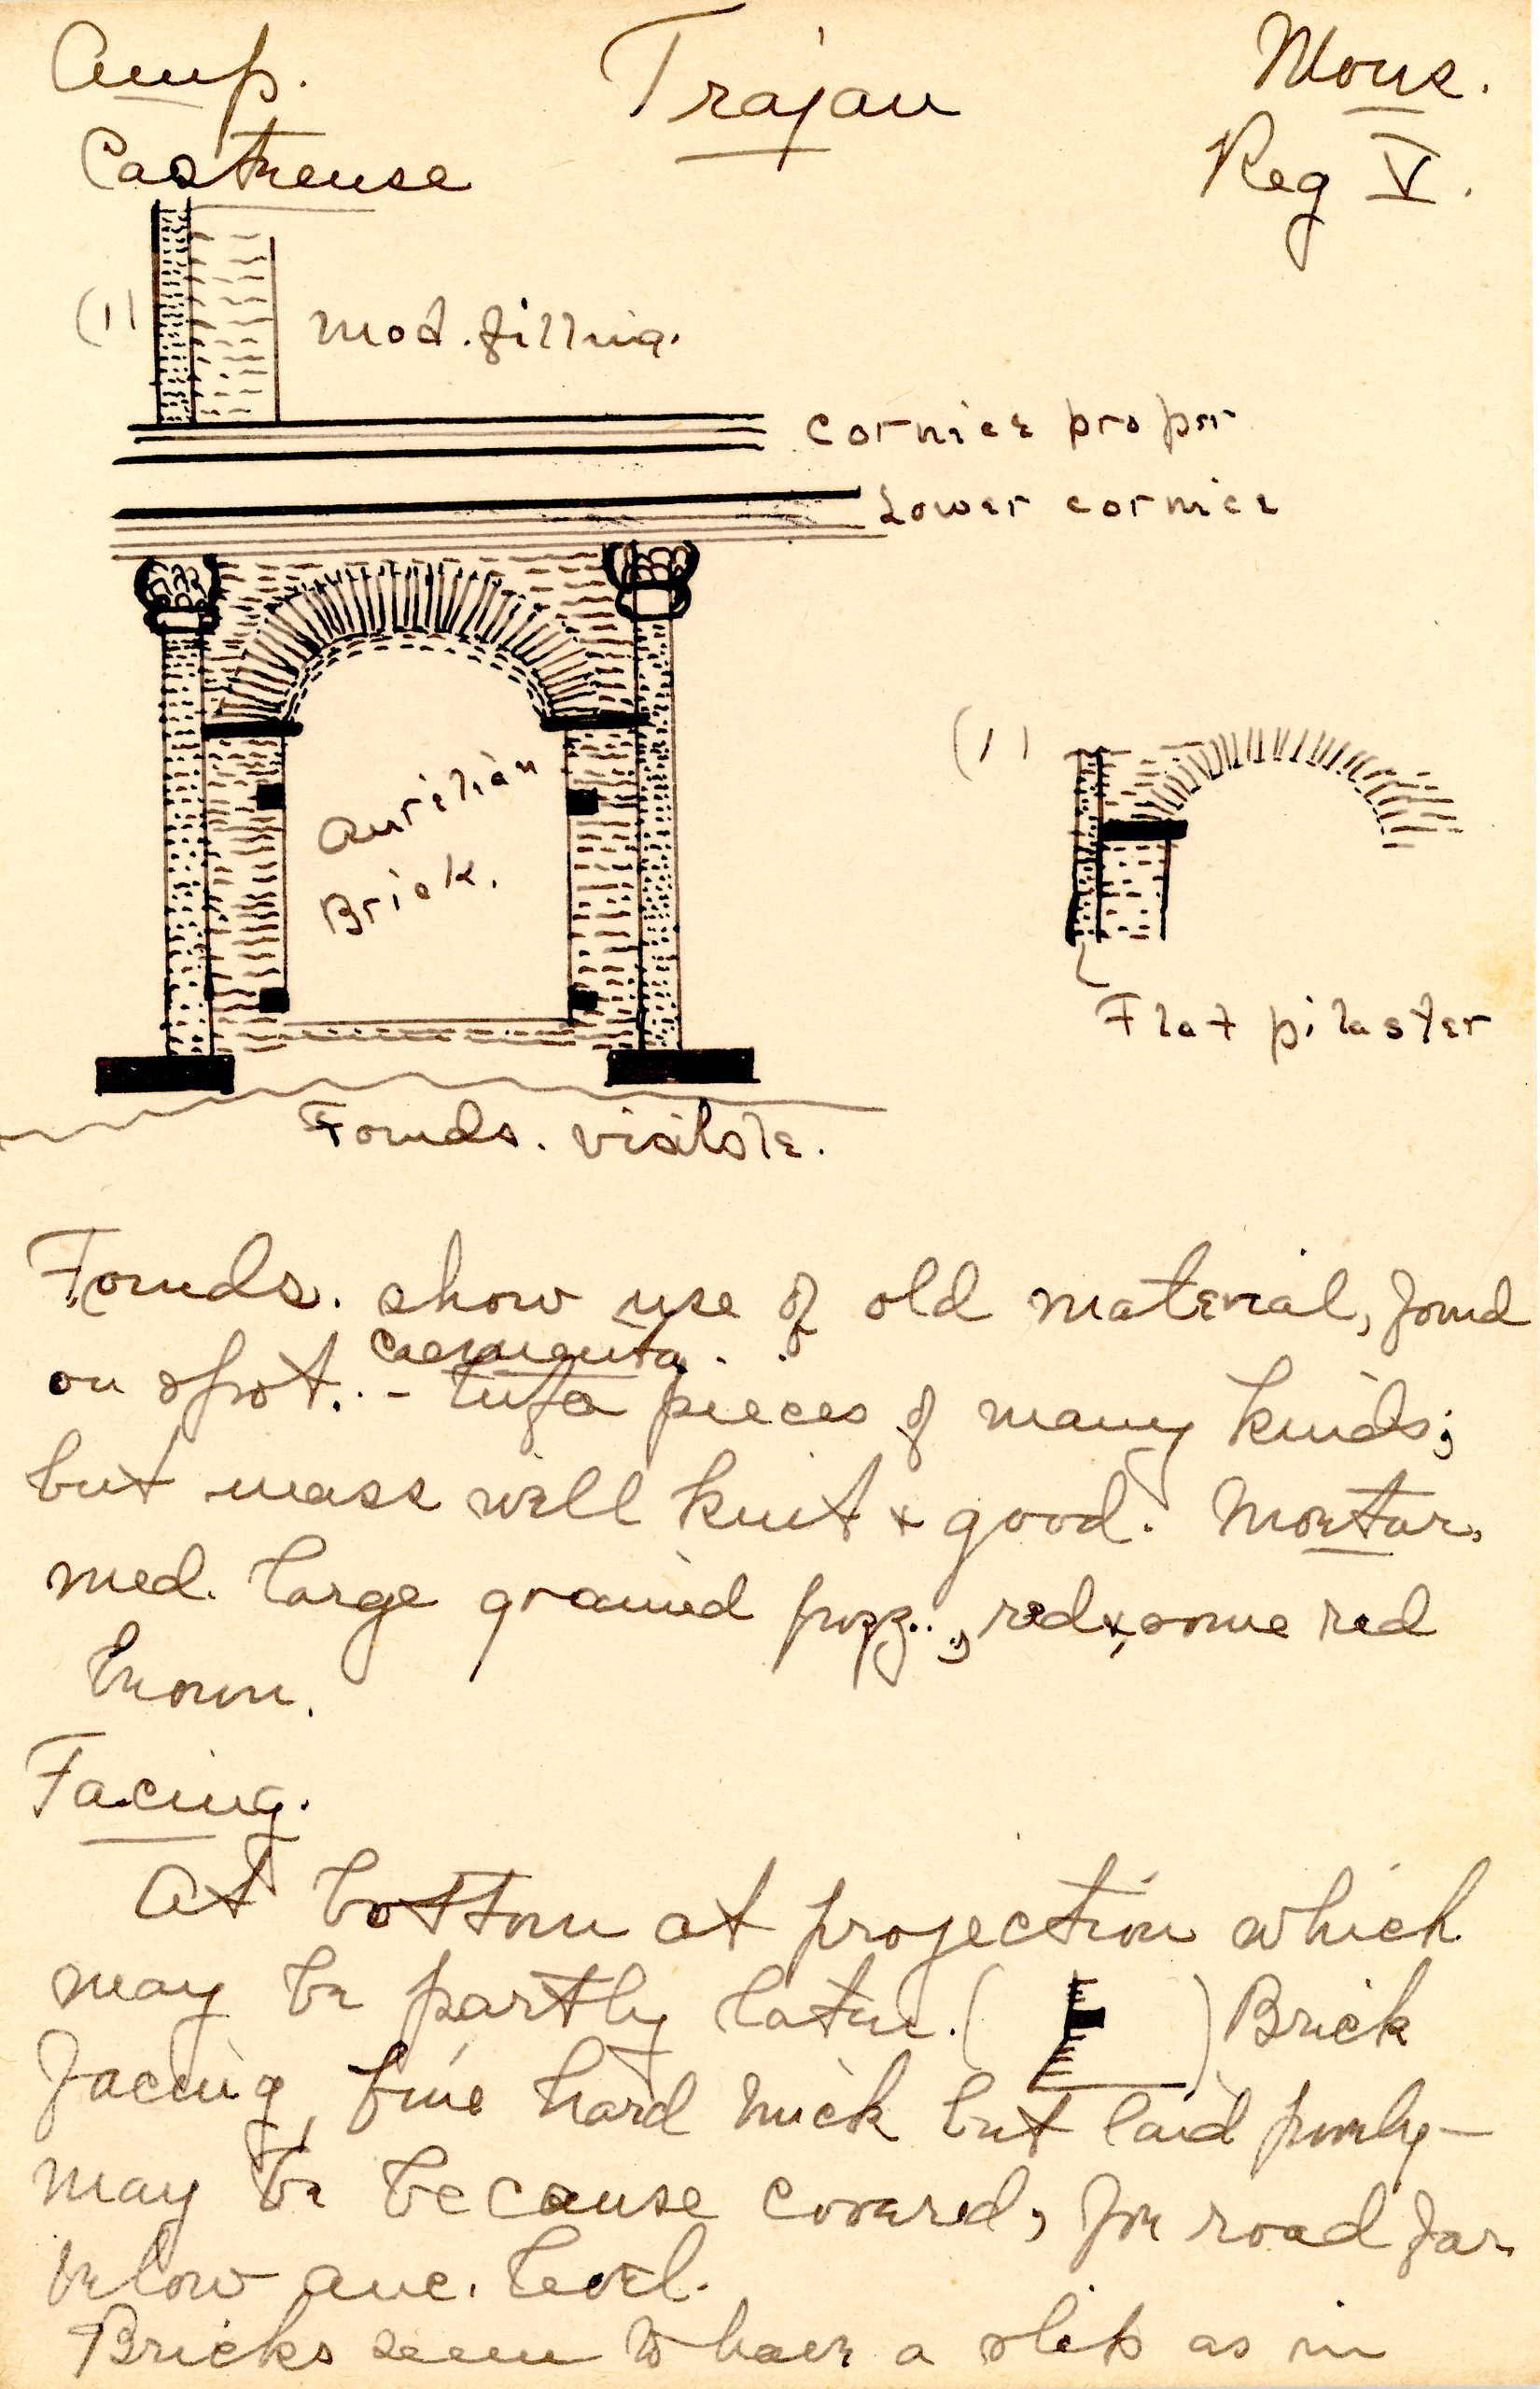 Amp. Trajan Mons.
Castrense Reg V.
(1) mod. filling.
cornice proper
Lower cornice
(1)
Aurelian
Brick.
Flat pilaster
Founds. visible.
Founds. show use of old material, found
caementa.
on spot. - tufa pieces of many kinds;
but mass well knit & good. Mortar,
med. large grained pozz., red & some red
brown.
Facing.
At bottom at projection which
may be partly later. ( ) Brick
facing, fine hard brick but laid poorly -
may be because covered, for road far
below anc. level.
Bricks seem to have a slip as in